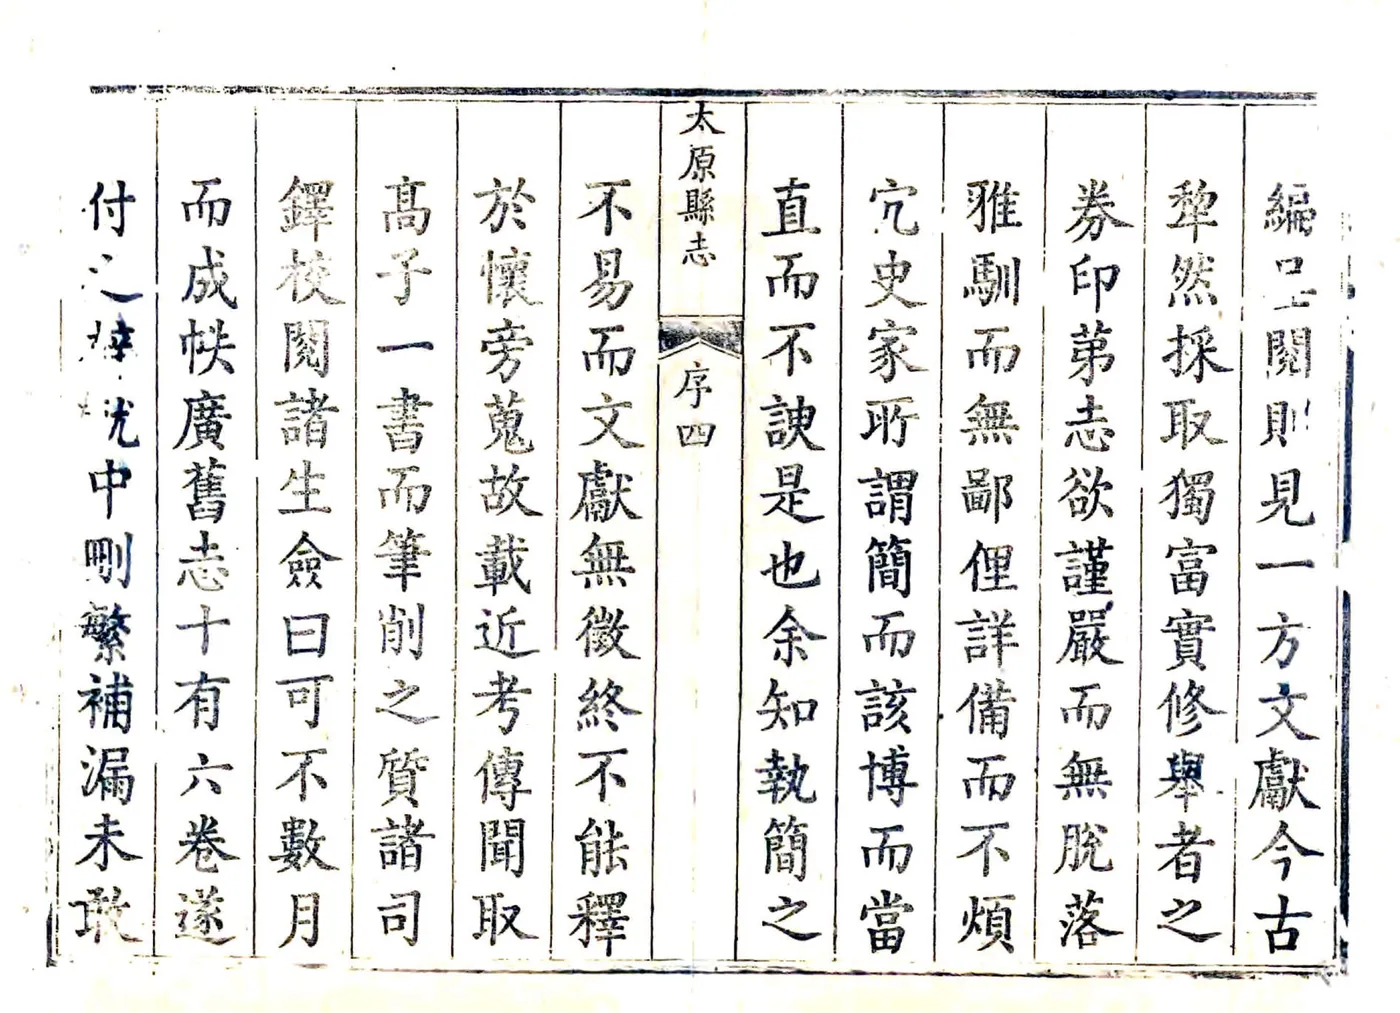 編呈閱則見一方文獻今古
犂然採取獨富實修舉者之
券印苐志欲謹嚴而無脫落
雅馴而無鄙俚詳備而不煩
宂史家所謂簡而該博而當
直而不諛是也余知執簡之
太原縣志
序四
不易而文獻無徵終不能釋
於懷旁蒐故載近考傳聞取
髙子一書而筆削之質諸司
鐸校閱諸生僉曰可不數月
而成帙廣舊志十有六卷遂
付之梓中刪繁補漏未敢